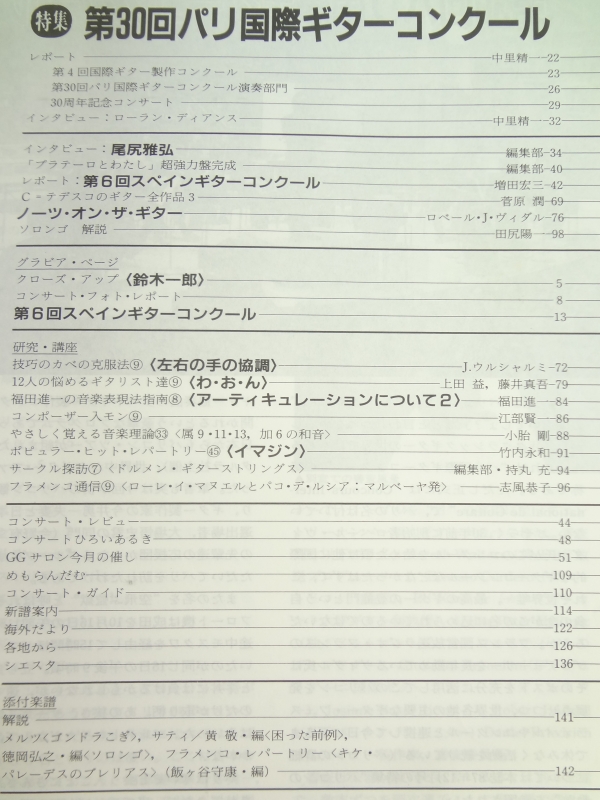 特集 第30回パリ国際ギターコンクール
レポート 中里精 22
第4回国際ギター製作コンクール 23
第30回パリ国際ギターコンクール演奏部門 26
30周年記念コンサート 29
インタビュー：ローラン・ディアンス 中里精 32
インタビュー：尾尻雅弘 編集部 34
「プラテーロとわたし」超強力盤完成 編集部 40
レポート：第6回スペインギターコンクール 増田宏三 42
C＝テデスコのギター全作品3 菅原 潤 69
ノーツ・オン・ザ・ギター ロベール・J・ヴィダル 76
ソロンゴ 解説 田尻陽一 98
グラビア・ページ
クローズ・アップ〈鈴木一郎〉 5
コンサート・フォト・レポート 8
第6回スペインギターコンクール 13
研究・講座
技巧のカベの克服法⑨〈左右の手の協調〉 J.ウルシャルミ 72
12人の悩めるギタリスト達⑨〈わ・お・ん〉 上田 益，藤井真吾 79
福田進一の音楽表現法指南⑧〈アーティキュレーションについて2〉 福田進一 84
コンポーザー入モン⑨ 江部賢一 86
やさしく覚える音楽理論㉝〈属9・11・13，加6の和音〉 小胎 剛 88
ポピュラー・ヒット・レパートリー㊺〈イマジン〉 竹内永和 91
サークル探訪⑦〈ドルメン・ギターストリングス〉 編集部・持丸 充 94
フラメンコ通信⑨〈ローレ・イ・マヌエルとパコ・デ・ルシア：マルベーヤ発〉 志風恭子 96
コンサート・レビュー 44
コンサートひろいあるき 48
GGサロン今月の催し 51
めもらんだむ 109
コンサート・ガイド 110
新譜案内 114
海外だより 122
各地から 126
シエスタ 136
添付楽譜
解説 141
メルツ〈ゴンドラこぎ〉，サティ／黄 敬・編〈困った前例〉，
徳岡弘之・編〈ソロンゴ〉，フラメンコ・レパートリー〈キケ・
パレーデスのブレリアス〉（飯ヶ谷守康・編） 142